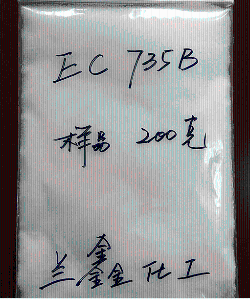 EC 735B
样品 200克
兰鑫化工